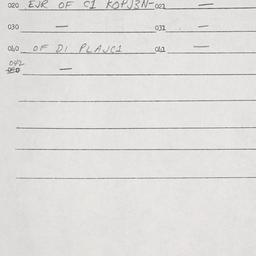 020 EJR OF C1 KOPJ3N- 021 —
030 — 031 —
040 OF DI PLAUC1 041 —
042 —